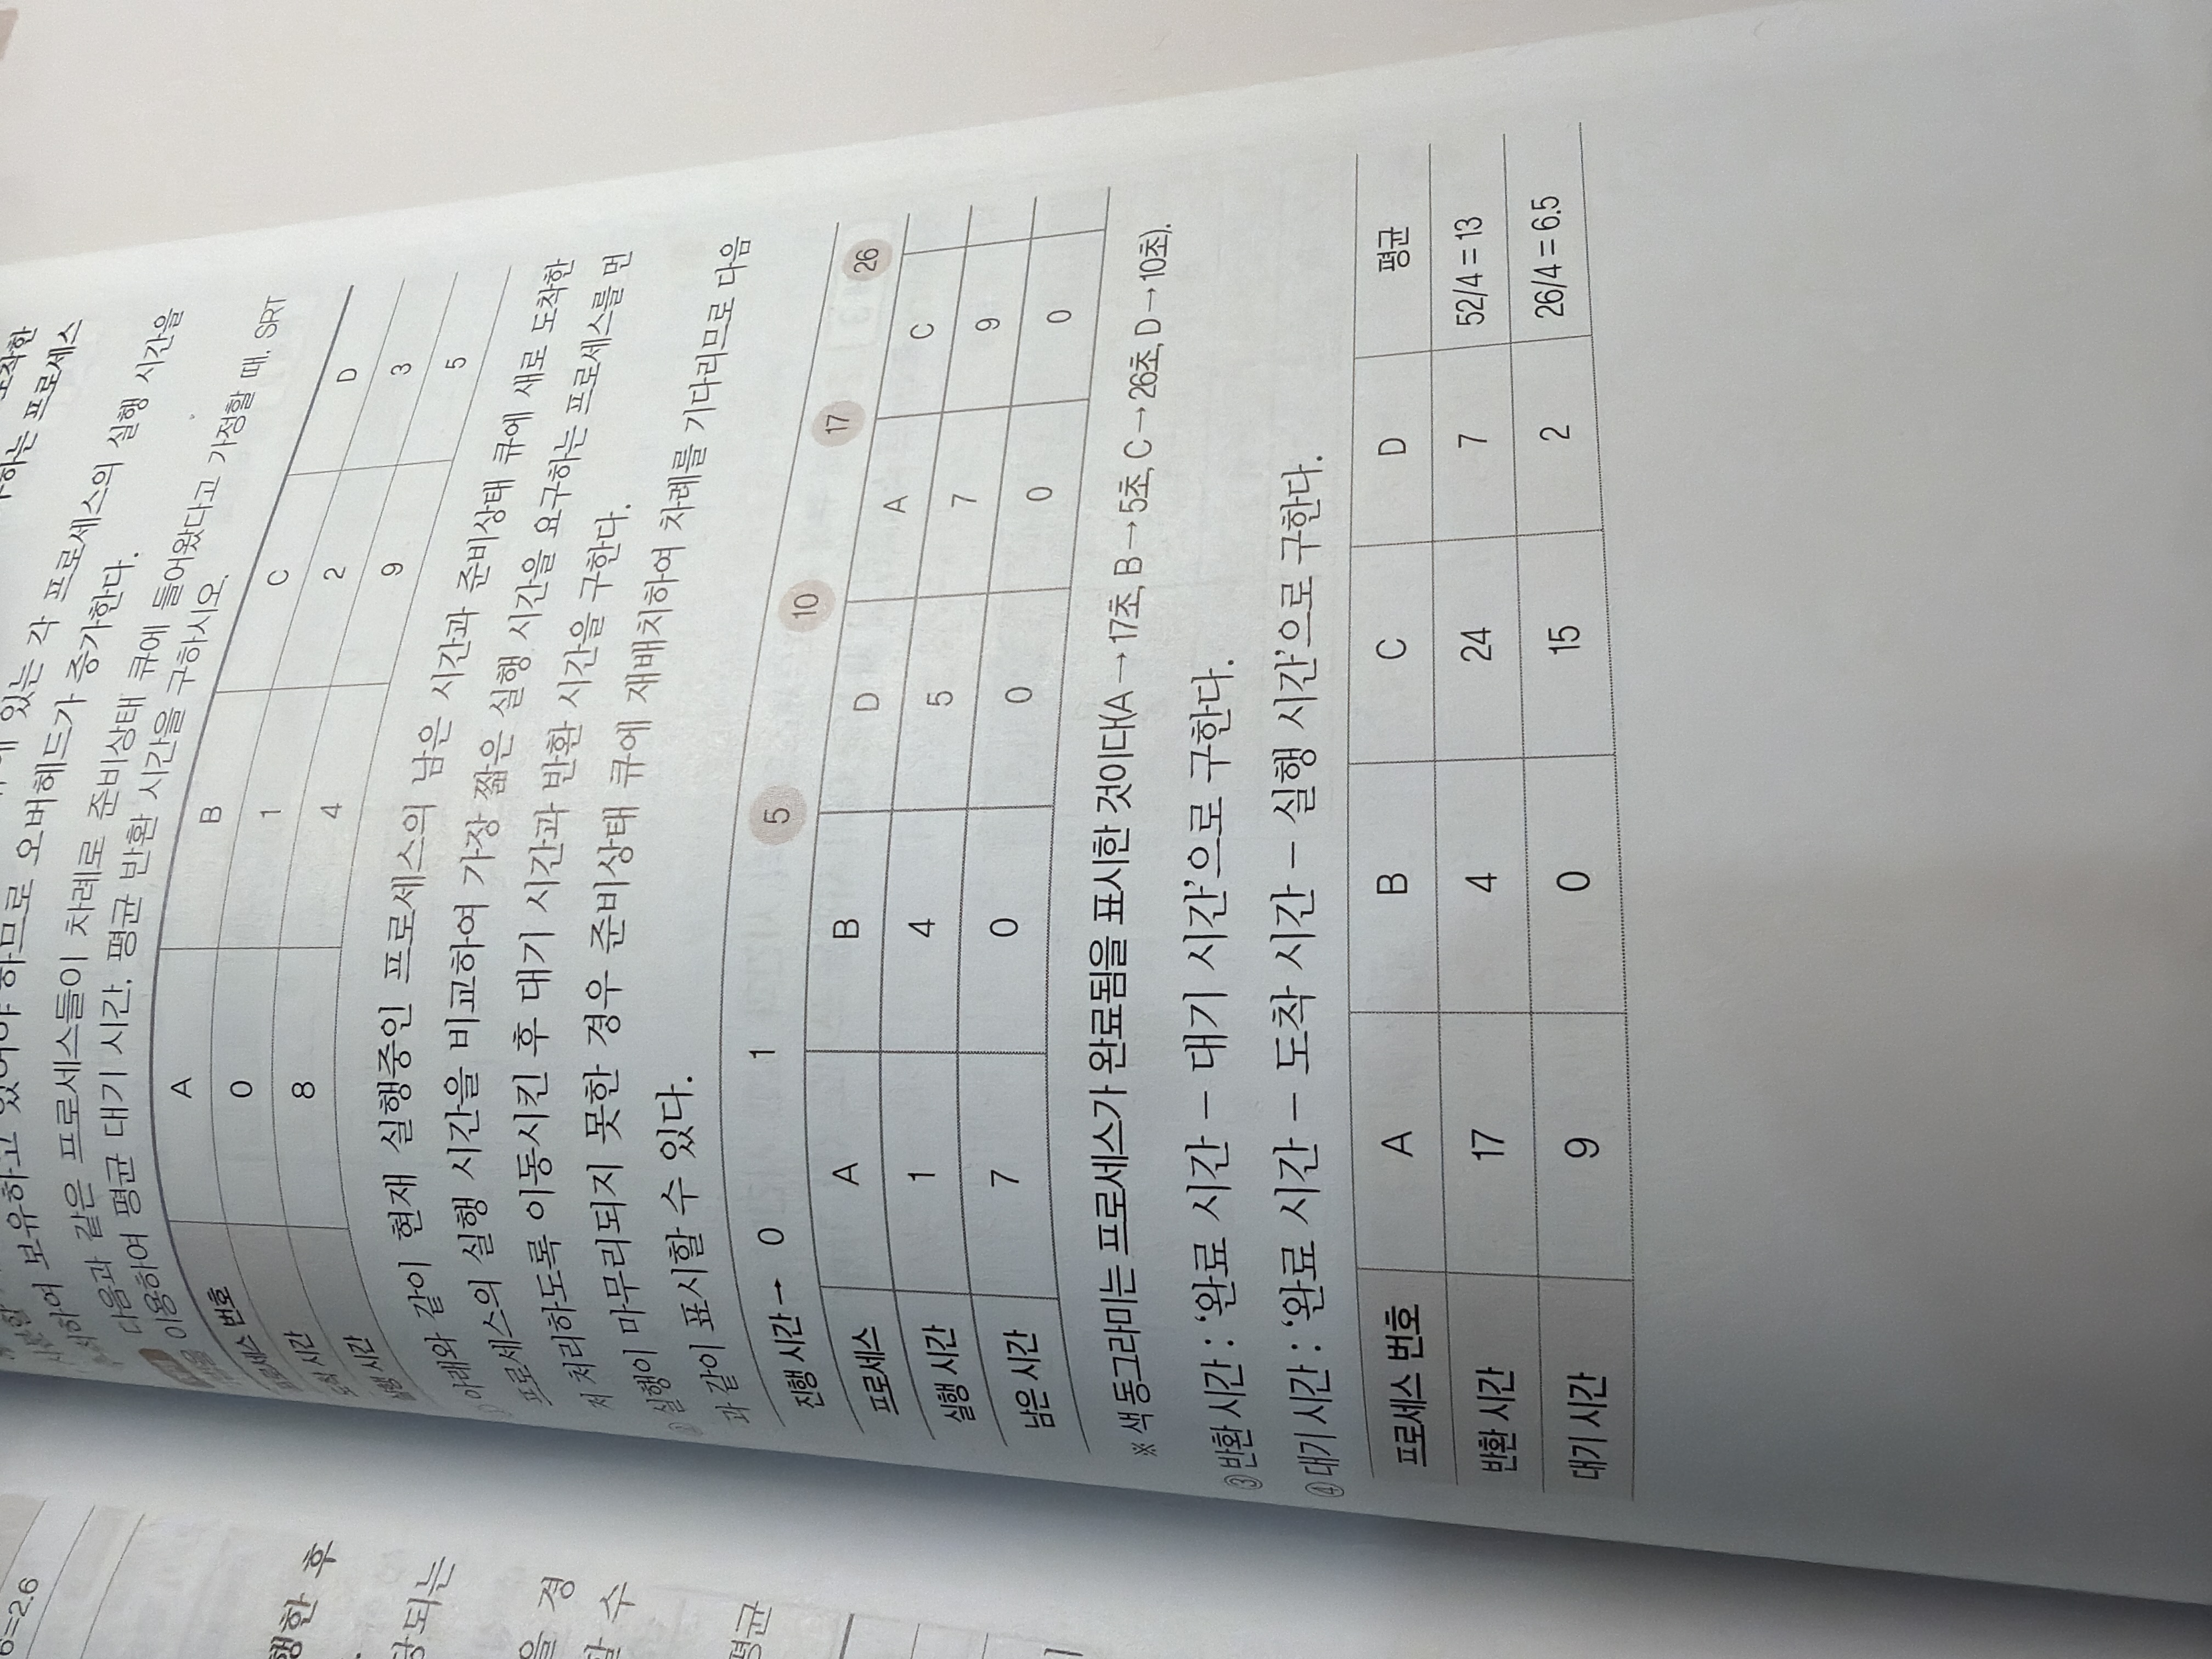 도착한
하는 프로세스
있는 각 프로세스의 실행 시간을
하여 보유하고 있어야 하므로 오버헤드가 증가한다.
다음과 같은 프로세스들이 차례로 준비상태 큐에 들어왔다고 가정할 때, SRT
이용하여 평균 대기 시간, 평균 반환 시간을 구하시오.
프로세스 번호 A B C D
도착 시간 0 1 2 3
실행 시간 8 4 9 5
① 아래와 같이 현재 실행중인 프로세스의 남은 시간과 준비상태 큐에 새로 도착한
프로세스의 실행 시간을 비교하여 가장 짧은 실행 시간을 요구하는 프로세스를 먼
저 처리하도록 이동시킨 후 대기 시간과 반환 시간을 구한다.
② 실행이 마무리되지 못한 경우 준비상태 큐에 재배치하여 차례를 기다리므로 다음
과 같이 표시할 수 있다.
진행 시간 → 0 1 5 10 17 26
프로세스 A B D A C
실행 시간 1 4 5 7 9
남은 시간 7 0 0 0 0
※ 색 동그라미는 프로세스가 완료됨을 표시한 것이다(A → 17초, B → 5초, C → 26초, D → 10초).
③ 반환 시간 : '완료 시간 – 대기 시간'으로 구한다.
④ 대기 시간 : '완료 시간 – 도착 시간 – 실행 시간'으로 구한다.
프로세스 번호 A B C D 평균
반환 시간 17 4 24 7 52/4 = 13
대기 시간 9 0 15 2 26/4 = 6.5
=2.6
행한 후
당되는
을 경
할 수
평균